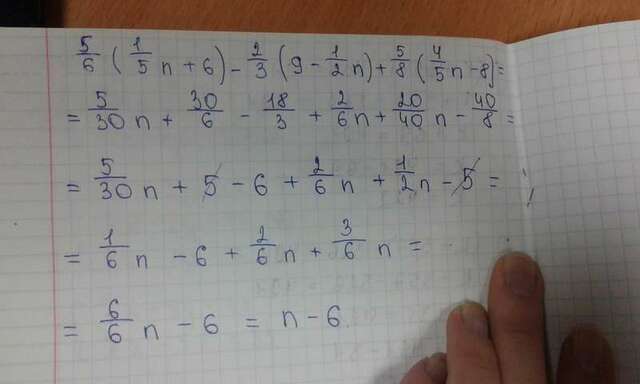 5/6 (1/5 n + 6) - 2/3 (9 - 1/2 n) + 5/8 (4/5 n - 8) =
= 5/30 n + 30/6 - 18/3 + 2/6 n + 20/40 n - 40/8 =
= 5/30 n + 5 - 6 + 2/6 n + 1/2 n - 5 =
= 1/6 n - 6 + 2/6 n + 3/6 n =
= 6/6 n - 6 = n - 6